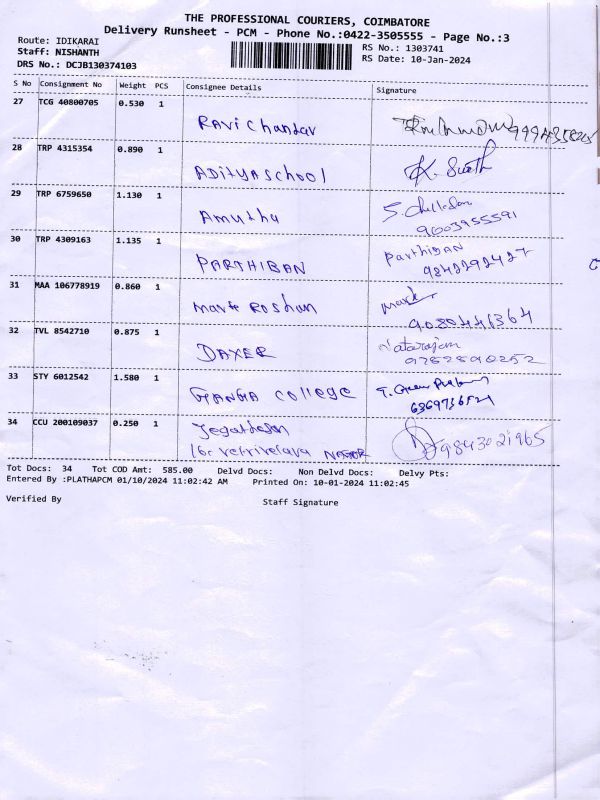 THE PROFESSIONAL COURIERS, COIMBATORE
Delivery Runsheet - PCM - Phone No.:0422-3505555 - Page No.:3
Route: IDIKARAI
RS No.: 1303741
Staff: NISHANTH
RS Date: 10-Jan-2024
DRS No.: DCJB130374103
S No Consignment No Weight PCS Consignee Details Signature
27 TCG 40800705 0.530 1
Ravi Chandar
28 TRP 4315354 0.890 1
Aditya school
29 TRP 6759650 1.130 1
Amutha
9003955591
30 TRP 4309163 1.135 1
PARTHIBAN Parthiban
9842292427
31 MAA 106778919 0.860 1
mark Roshan mark
9080446364
32 TVL 8542710 0.875 1
DAXER Natarajan
33 STY 6012542 1.580 1
GANGA College
34 CCU 200109037 0.250 1
Jegatheson
9843021965
NAGAR
Tot Docs: 34 Tot COD Amt: 585.00 Delvd Docs: Non Delvd Docs: Delvy Pts:
Entered By :PLATHAPCM 01/10/2024 11:02:42 AM Printed On: 10-01-2024 11:02:45
Verified By Staff Signature